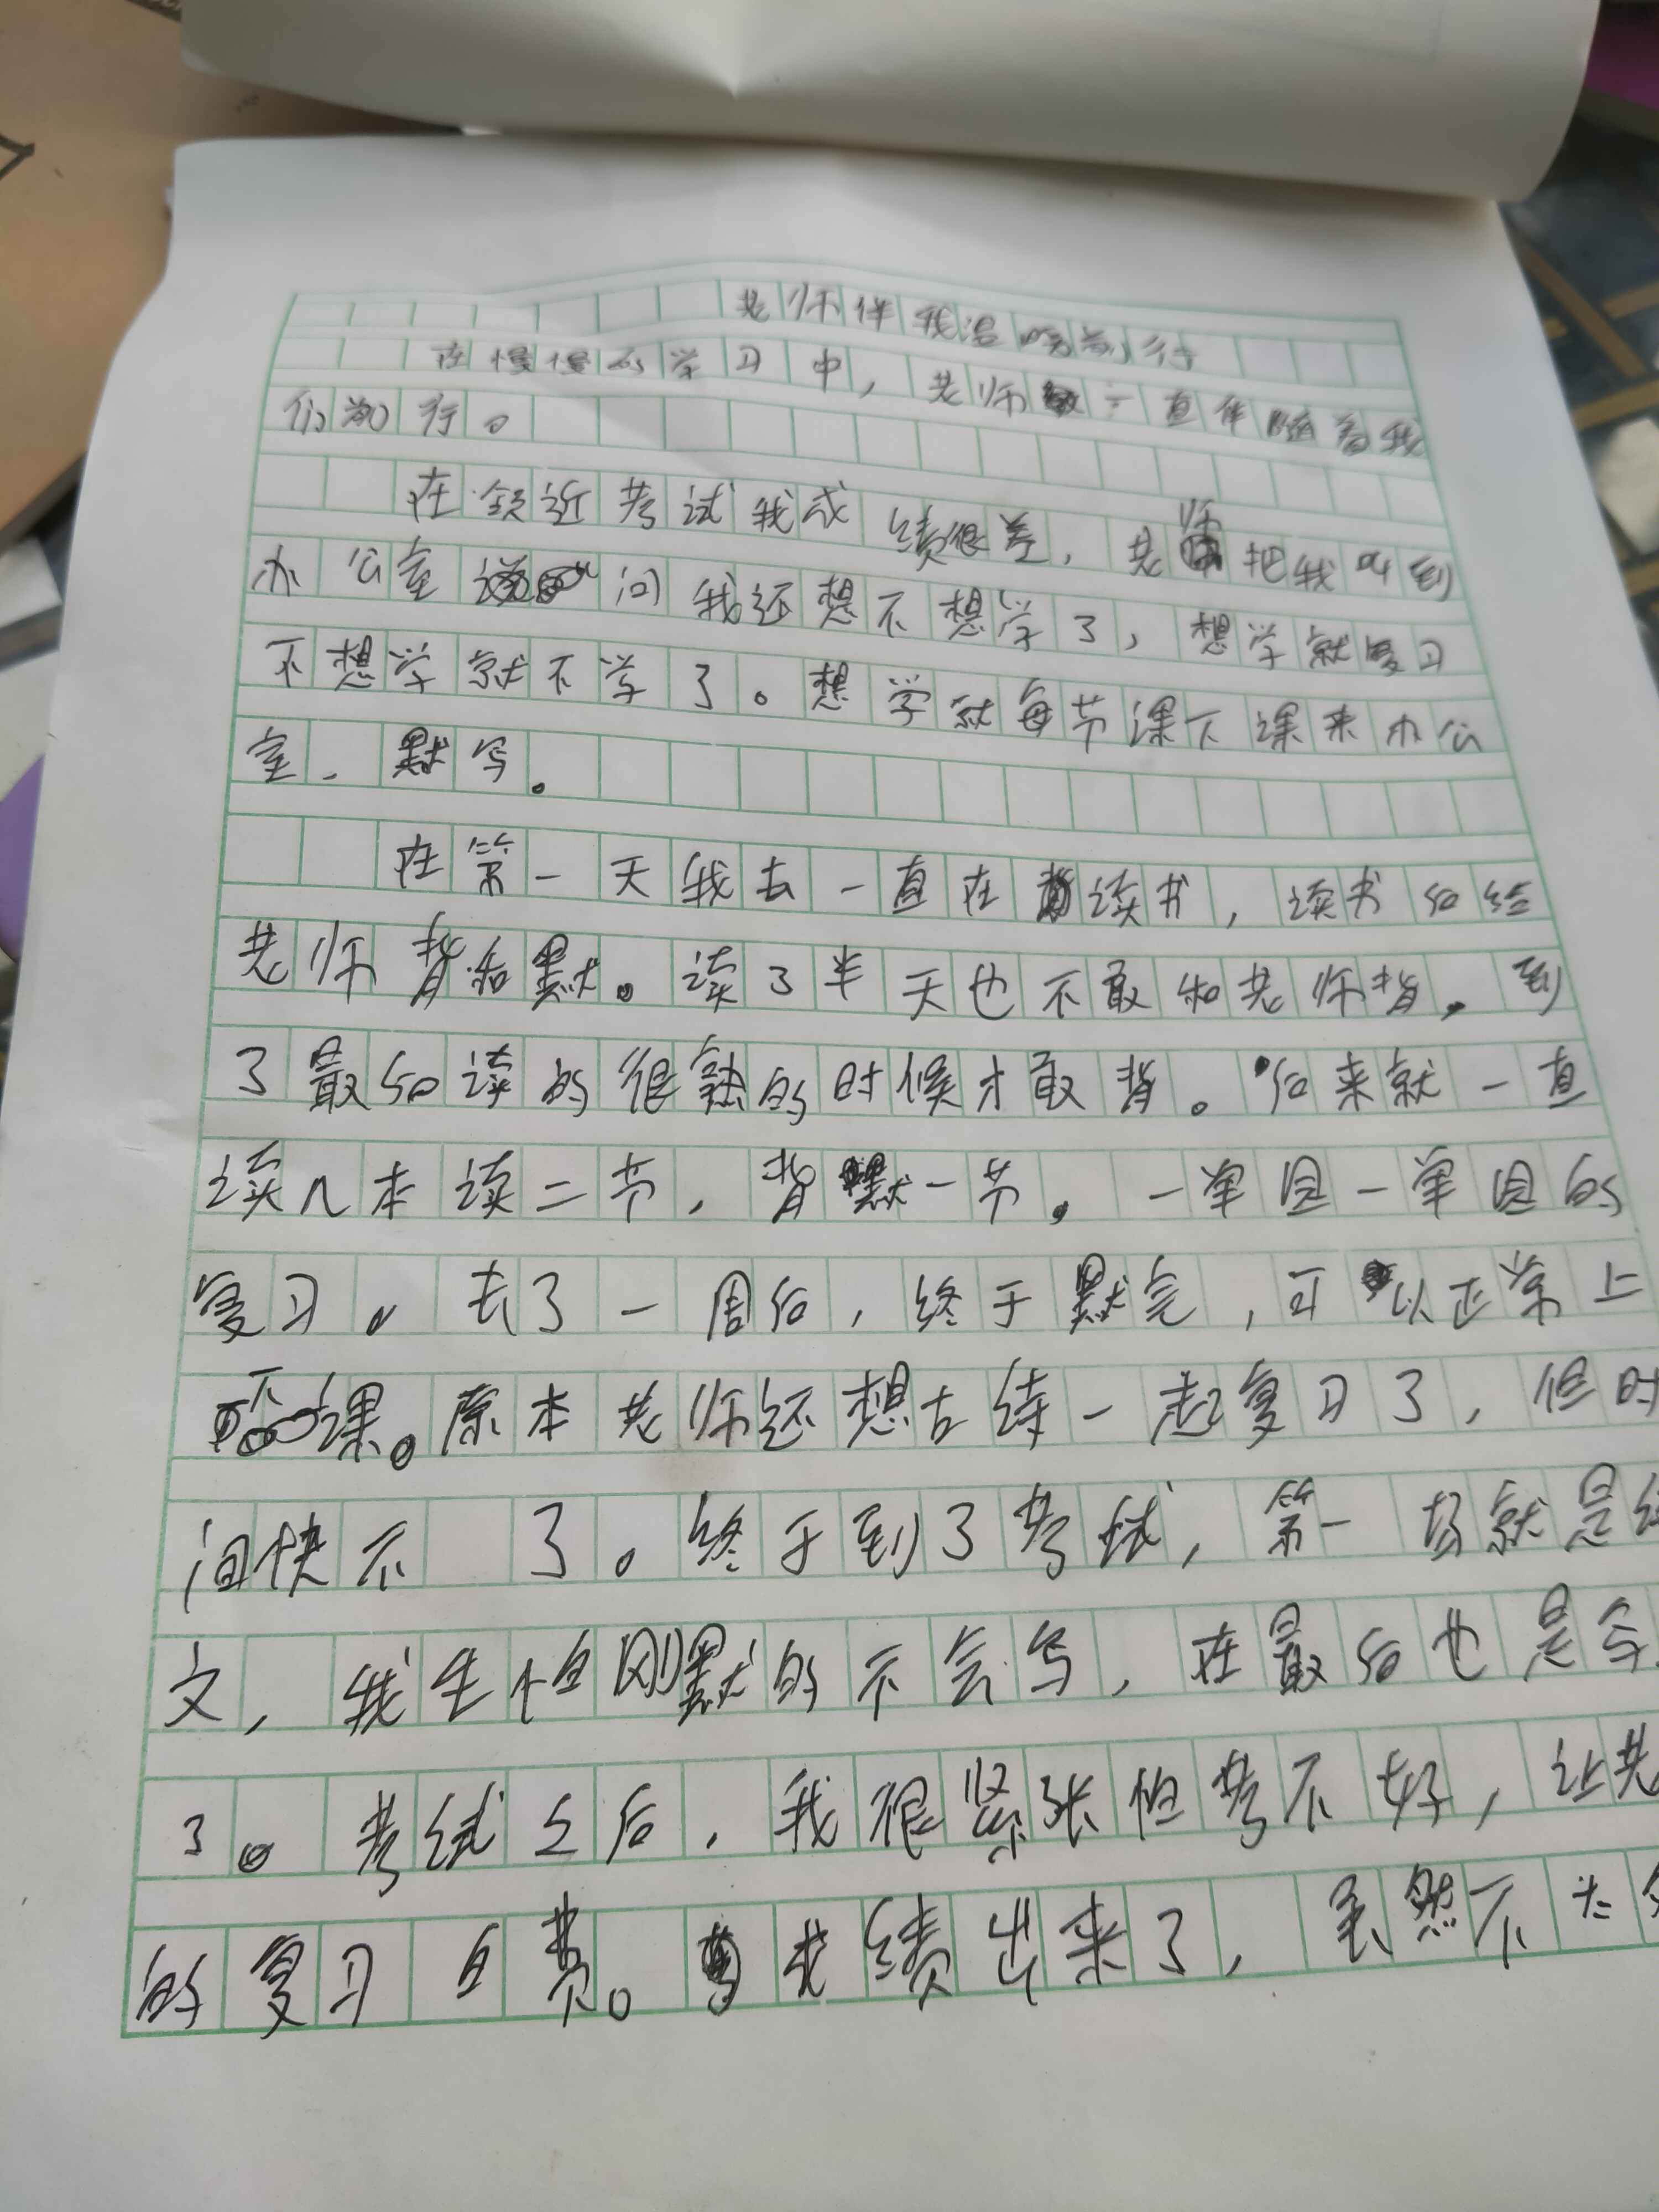 老师伴我温暖前行
在慢慢的学习中，老师一直伴随着我
们前行。
在领近考试我成绩很差，老师把我叫到
办公室问我还想不想学了，想学就复习
不想学就不学了。想学就每节课下课来办公
室，默写。
在第一天我去一直在读书，读书后给
老师背和默。读了半天也不敢和老师背，到
了最后读的很熟的时候才敢背。后来就一直
读几本读二节，背默一节。一单园一单园的
复习。去了一周后，终于默完，可以正常上
课。原本老师还想古诗一起复习了，但时
间快不了。终于到了考试，第一场就是语
文，我生怕刚默的不会写，在最后也是写
了。考试之后，我很紧张怕考不好，让老
的复习白费。成绩出来了，虽然不太